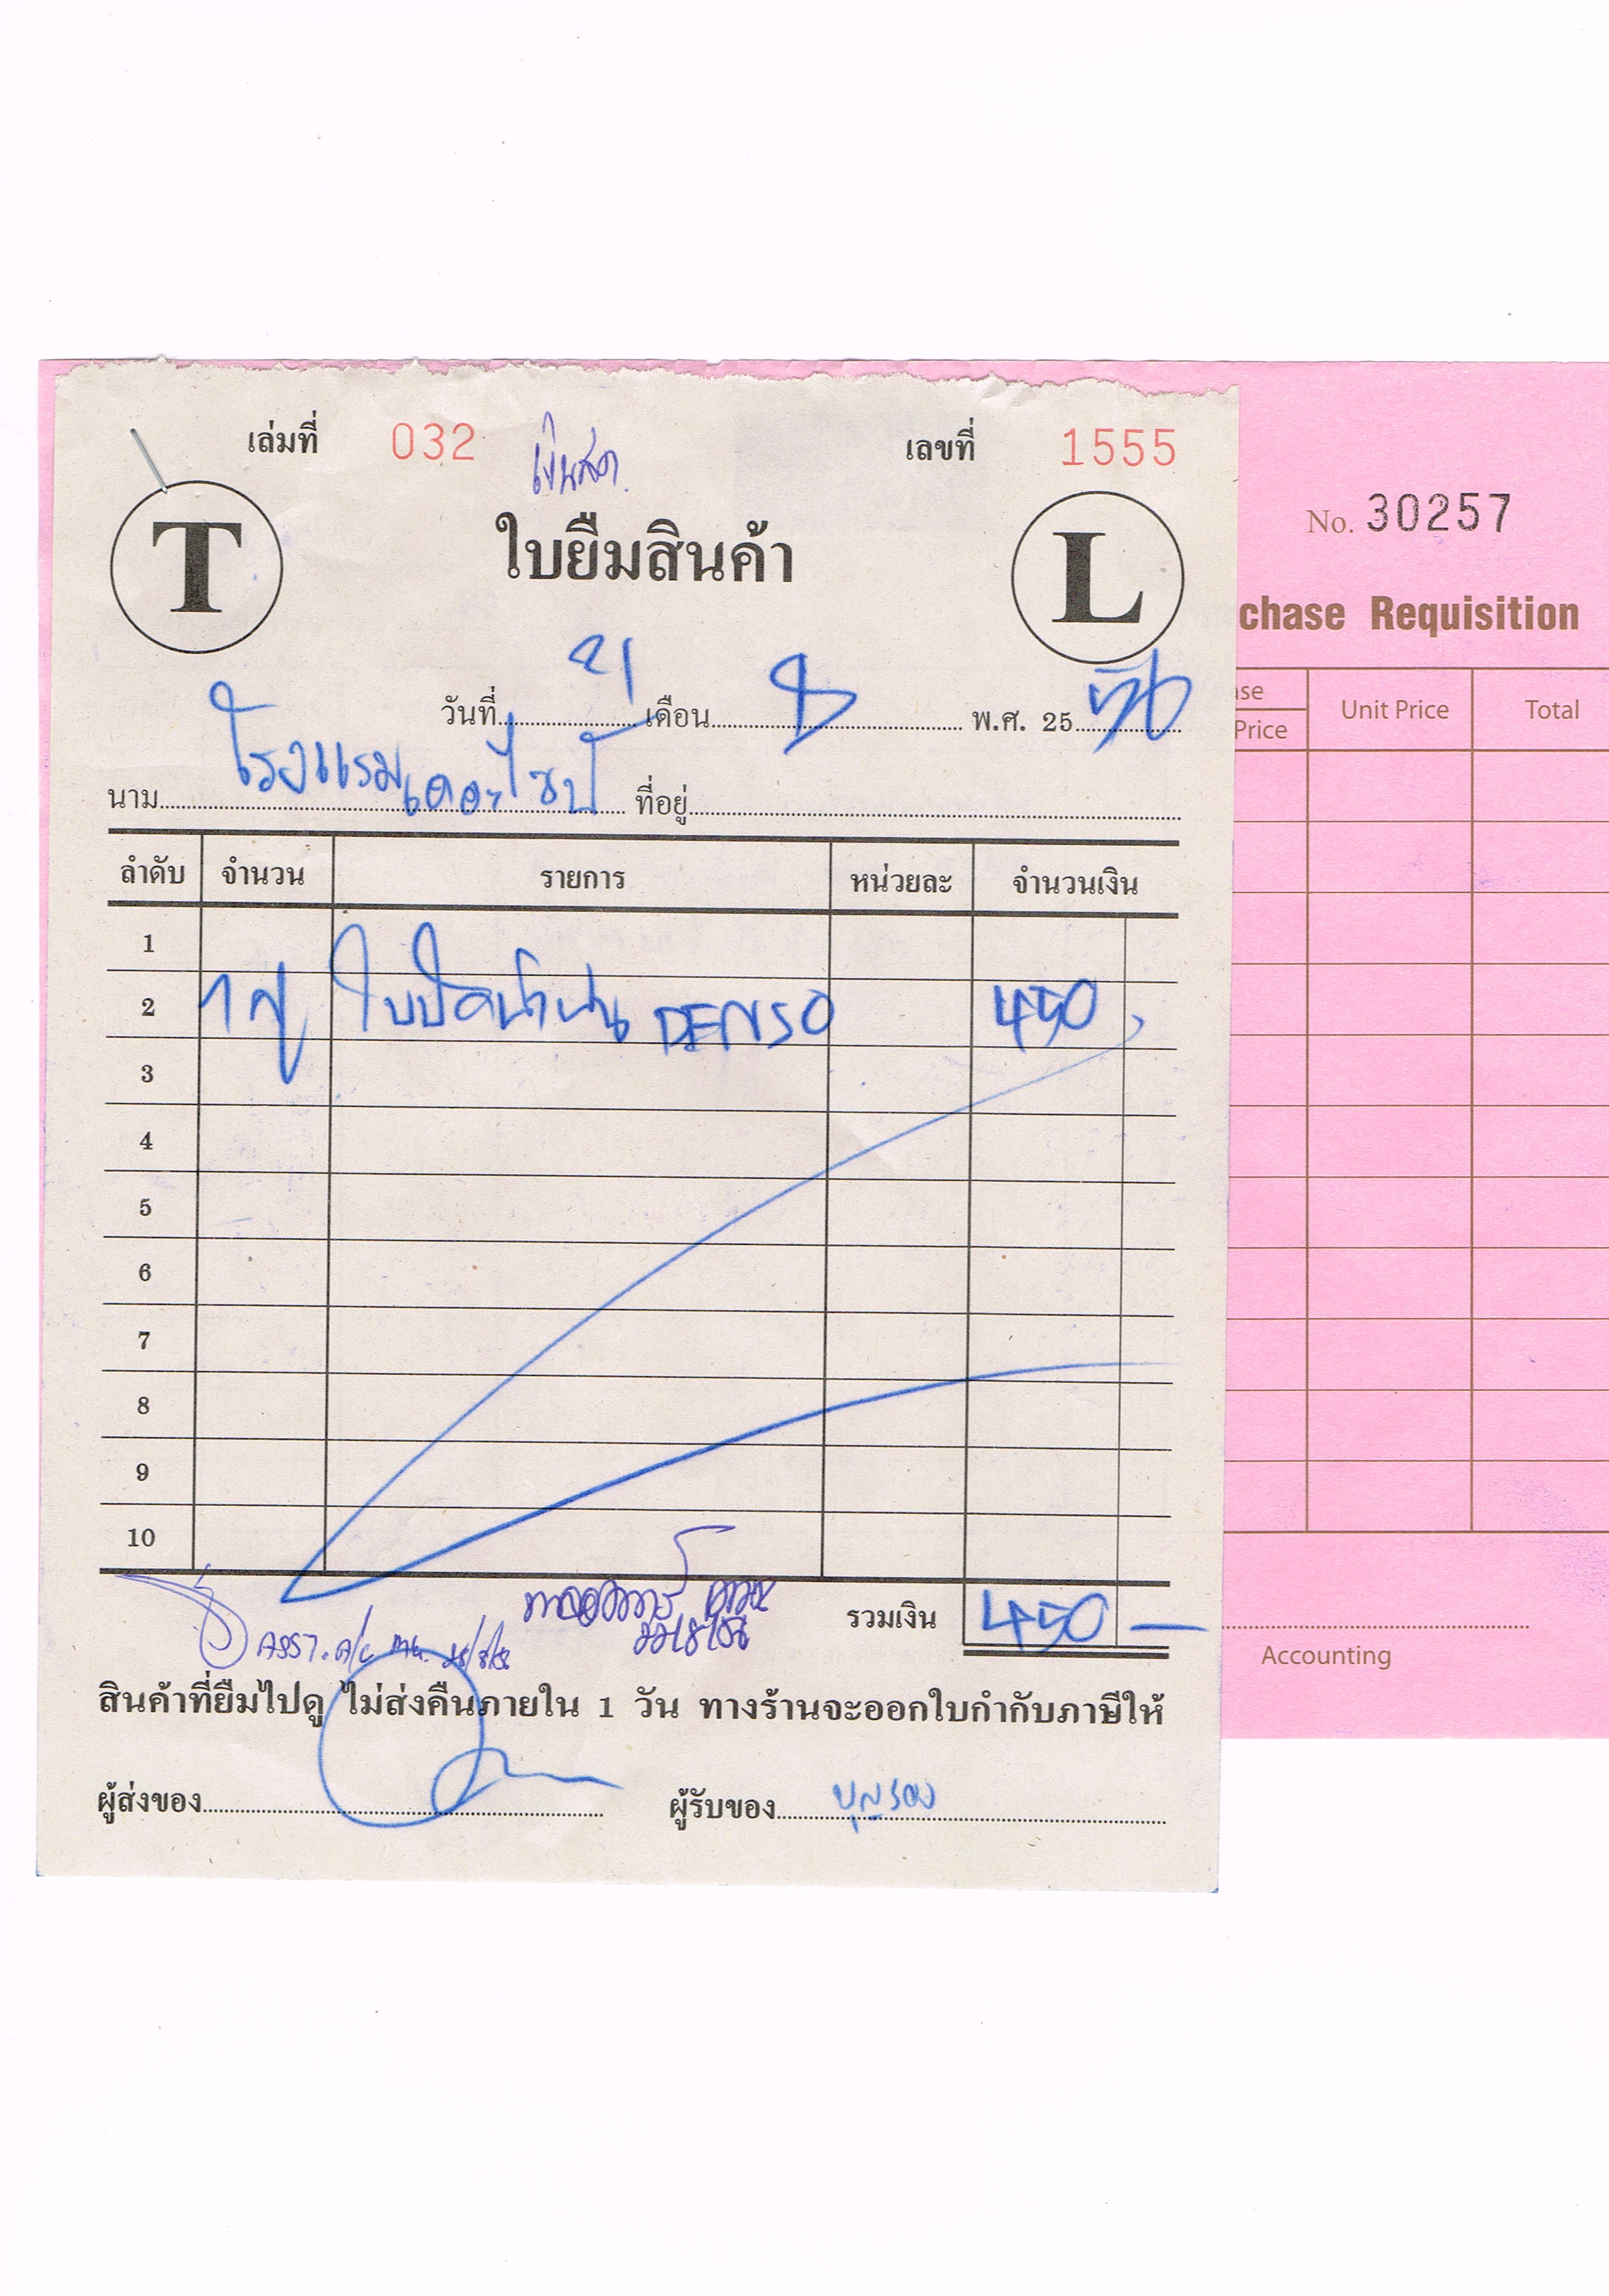 เล่มที่ 032 เงินสด เลขที่ 1555
T ใบยืมสินค้า L
วันที่ 21 เดือน 8 พ.ศ. 2556
นาม โรงแรม ที่อยู่
ลำดับ จำนวน รายการ หน่วยละ จำนวนเงิน
1
2 1 คู่ ใบปัดน้ำฝน DENSO 450
3
4
5
6
7
8
9
10
รวมเงิน 450 —
ASST. A/C
สินค้าที่ยืมไปดู ไม่ส่งคืนภายใน 1 วัน ทางร้านจะออกใบกำกับภาษีให้
ผู้ส่งของ ผู้รับของ บุญรอง
No. 30257
chase Requisition
ase
Price Unit Price Total
Accounting